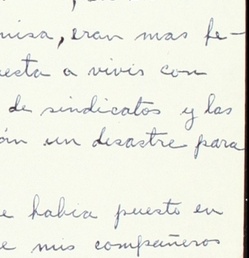 misa, eran mas fe-
uesta a vivir con
de sindicatos y las
án un desastre para
e habia puesto en
e mis compañeros